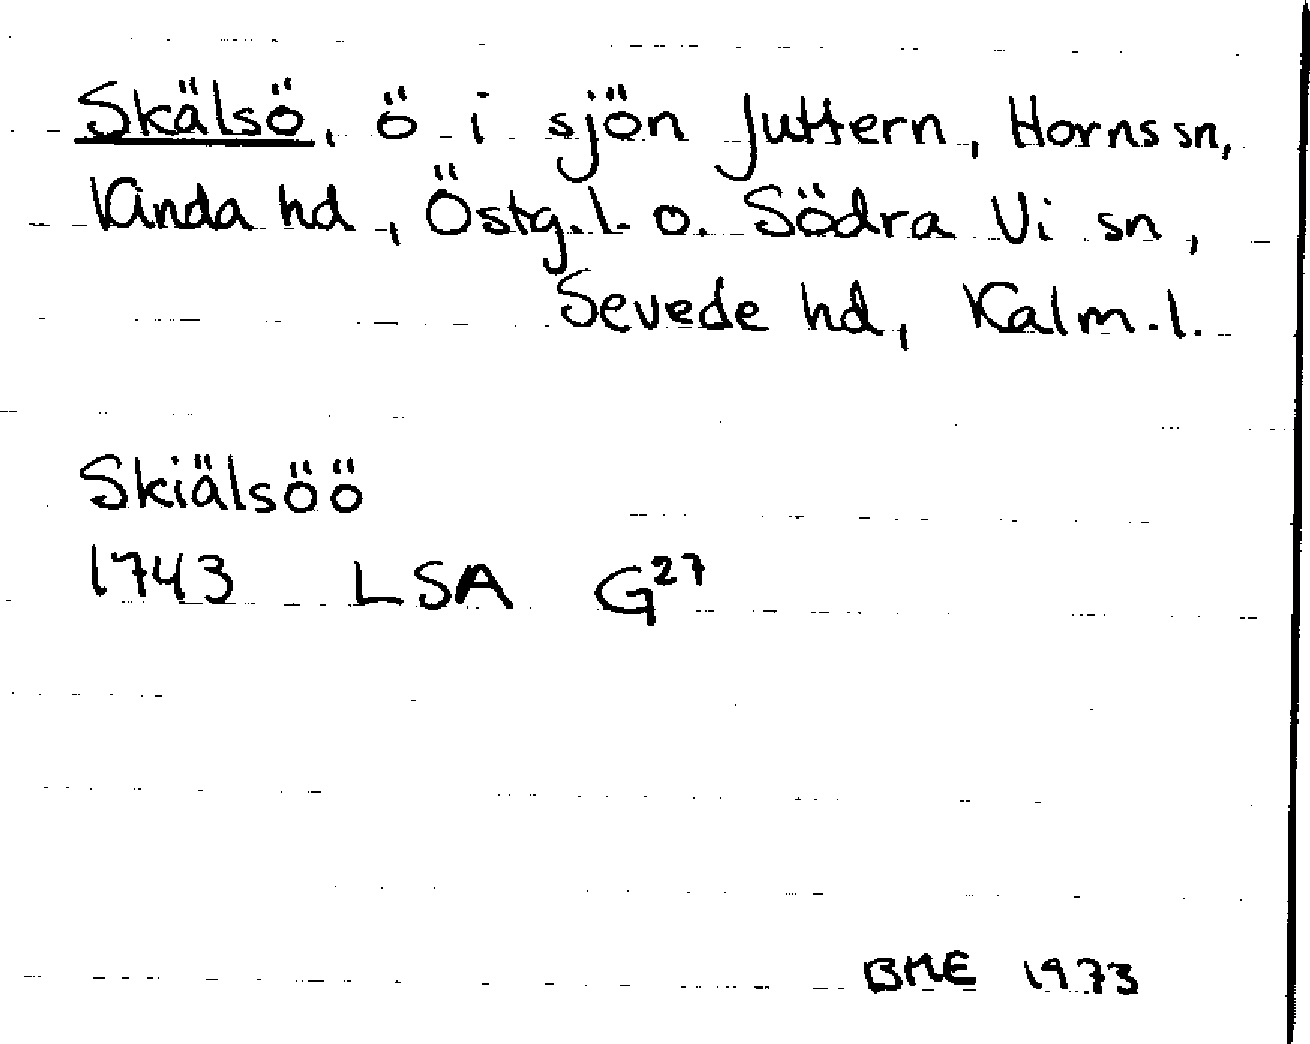 Skälsö, ö i sjön Juttern, Horns sn,
Kinda hd, Östg.l. o. Södra Vi sn,
Sevede hd, Kalm.l.
Skiälsöö
1743 LSA G27
BME 1973